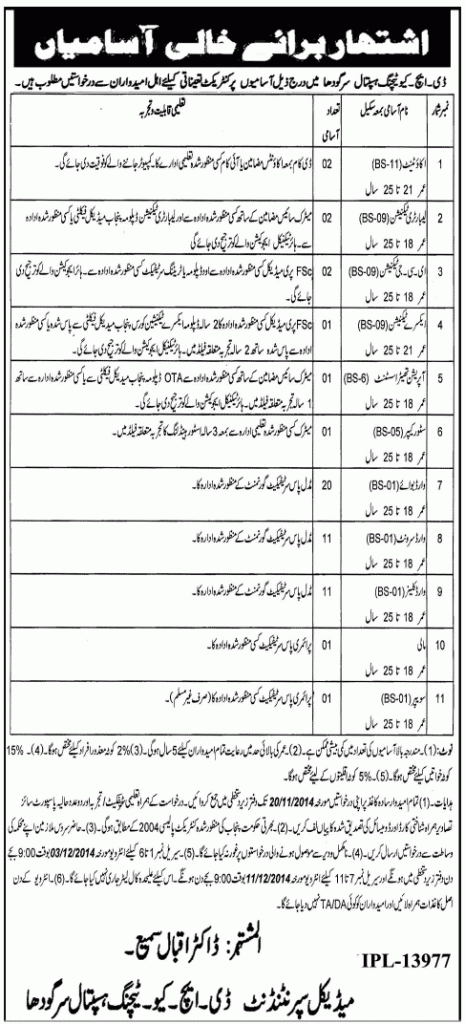 اشتہار برائے خالی آسامیاں
ڈی۔ ایچ۔ کیو ٹیچنگ ہسپتال سرگودھا میں درج ذیل آسامیوں پر کنٹریکٹ تعیناتی کیلئے اہل امیدواران سے درخواستیں مطلوب ہیں۔
نمبر شمار نام آسامی بمعہ سکیل تعداد آسامی تعلیمی قابلیت و تجربہ
1 اکاؤنٹینٹ (BS-11) 02 ڈی کام بمعہ اکاؤنٹس مضامین یا آئی کام کسی منظور شدہ تعلیمی ادارے کا۔ کمپیوٹر جاننے والے کو فوقیت دی جائے گی۔
عمر 21 تا 25 سال
2 لیبارٹری ٹیکنیشن (BS-09) 02 میٹرک سائنس مضامین کے ساتھ کسی منظور شدہ ادارہ سے اور لیبارٹری ٹیکنیشن ڈپلومہ پنجاب میڈیکل فیکلٹی یا کسی منظور شدہ ادارہ
عمر 18 تا 25 سال سے۔ ہائر ٹیکنیکل ایجوکیشن والے کو ترجیح دی جائے گی
3 ای۔ سی۔ جی ٹیکنیشن (BS-09) 02 FSc پری میڈیکل کسی منظور شدہ ادارہ سے اور ڈپلومہ یا ٹریننگ سرٹیفکیٹ کسی منظور شدہ ادارہ سے۔ ہائر ایجوکیشن والے کو ترجیح دی
عمر 18 تا 25 سال جائے گی۔
4 ایکسرے ٹیکنیشن (BS-09) 01 FSc پری میڈیکل کسی منظور شدہ ادارہ کا 2 سالہ ڈپلومہ ایکسرے ٹیکنیشن کورس پنجاب میڈیکل فیکلٹی سے پاس شدہ یا کسی منظور شدہ
عمر 21 تا 25 سال ادارہ سے پاس شدہ ساتھ 2 سالہ تجربہ متعلقہ فیلڈ میں۔ ہائر ٹیکنیکل ایجوکیشن والے کو ترجیح دی جائے گی۔
5 آپریشن تھیٹر اسسٹنٹ (BS-6) 01 میٹرک سائنس مضامین کے ساتھ کسی منظور شدہ ادارہ سے OTA ڈپلومہ پنجاب میڈیکل فیکلٹی سے یا کسی منظور شدہ ادارہ سے ساتھ
عمر 18 تا 25 سال 1 سالہ تجربہ متعلقہ فیلڈ میں۔ ہائر ٹیکنیکل ایجوکیشن والے کو ترجیح دی جائے گی۔
6 سٹور کیپر (BS-05) 01 میٹرک کسی منظور شدہ تعلیمی ادارہ سے بمعہ 3 سالہ سٹور ہینڈلنگ کا تجربہ متعلقہ فیلڈ میں۔
عمر 18 تا 25 سال
7 وارڈ بوائے (BS-01) 20 مڈل پاس سرٹیفکیٹ گورنمنٹ کے منظور شدہ ادارہ کا۔
عمر 18 تا 25 سال
8 وارڈ سرونٹ (BS-01) 11 مڈل پاس سرٹیفکیٹ گورنمنٹ کے منظور شدہ ادارہ کا۔
عمر 18 تا 25 سال
9 وارڈ کلینر (BS-01) 11 مڈل پاس سرٹیفکیٹ گورنمنٹ کے منظور شدہ ادارہ کا۔
عمر 18 تا 25 سال
10 مالی 01 پرائمری پاس سرٹیفکیٹ کسی منظور شدہ ادارہ کا۔
عمر 18 تا 25 سال
11 سویپر (BS-01) 01 پرائمری پاس سرٹیفکیٹ کسی منظور شدہ ادارہ کا (صرف غیر مسلم)۔
عمر 18 تا 25 سال
نوٹ: (1)۔ مندرجہ بالا آسامیوں کی تعداد میں کمی بیشی ممکن ہے۔ (2)۔ عمر کی بالائی حد میں رعایت تمام امیدواران کیلئے 5 سال ہوگی۔ (3) 2% کوٹہ معذور افراد کیلئے مختص ہوگا۔ (4)۔ 15%
کوٹہ خواتین کیلئے مختص ہوگا۔ (5)۔ 5% کوٹہ اقلیتوں کے لیے مختص ہوگا۔
ہدایات۔ (1)۔ تمام امیدوار سادہ کاغذ پر اپنی درخواستیں مورخہ 20/11/2014 تک دفتر زیر دستخطی میں جمع کروائیں۔ درخواست کے ہمراہ تعلیمی سرٹیفکیٹ/ تجربہ اور دو عدد حالیہ پاسپورٹ سائز
تصاویر ہمراہ شناختی کارڈ اور ڈومیسائل کی تصدیق شدہ کاپیاں لف کریں۔ (2)۔ بھرتی حکومت پنجاب کی منظور شدہ کنٹریکٹ پالیسی 2004 کے مطابق ہوگی۔ (3)۔ حاضر سروس ملازمین اپنے محکمہ کی
وساطت سے درخواستیں ارسال کریں۔ (4)۔ نامکمل و دیر سے موصول ہونے والی درخواستوں پر غور نہ کیا جائے گا۔ (5)۔ سیریل نمبر 1 تا 6 کیلئے انٹرویو مورخہ 03/12/2014 بوقت 9:00 بجے
دن دفتر زیر دستخطی میں ہونگے اور سیریل نمبر 7 تا 11 کیلئے انٹرویو مورخہ 11/12/2014 بوقت 9:00 بجے دن ہونگے۔ اس کیلئے علیحدہ کال لیٹر جاری نہیں کیا جائے گا۔ (6)۔ انٹرویو کے دن
اصل کاغذات ہمراہ لائیں اور امیدواران کو کوئی TA/DA نہیں دیا جائے گا۔
المشتہر: ڈاکٹر اقبال سمیع۔
IPL-13977
میڈیکل سپرنٹنڈنٹ ڈی۔ ایچ۔ کیو۔ ٹیچنگ ہسپتال سرگودھا